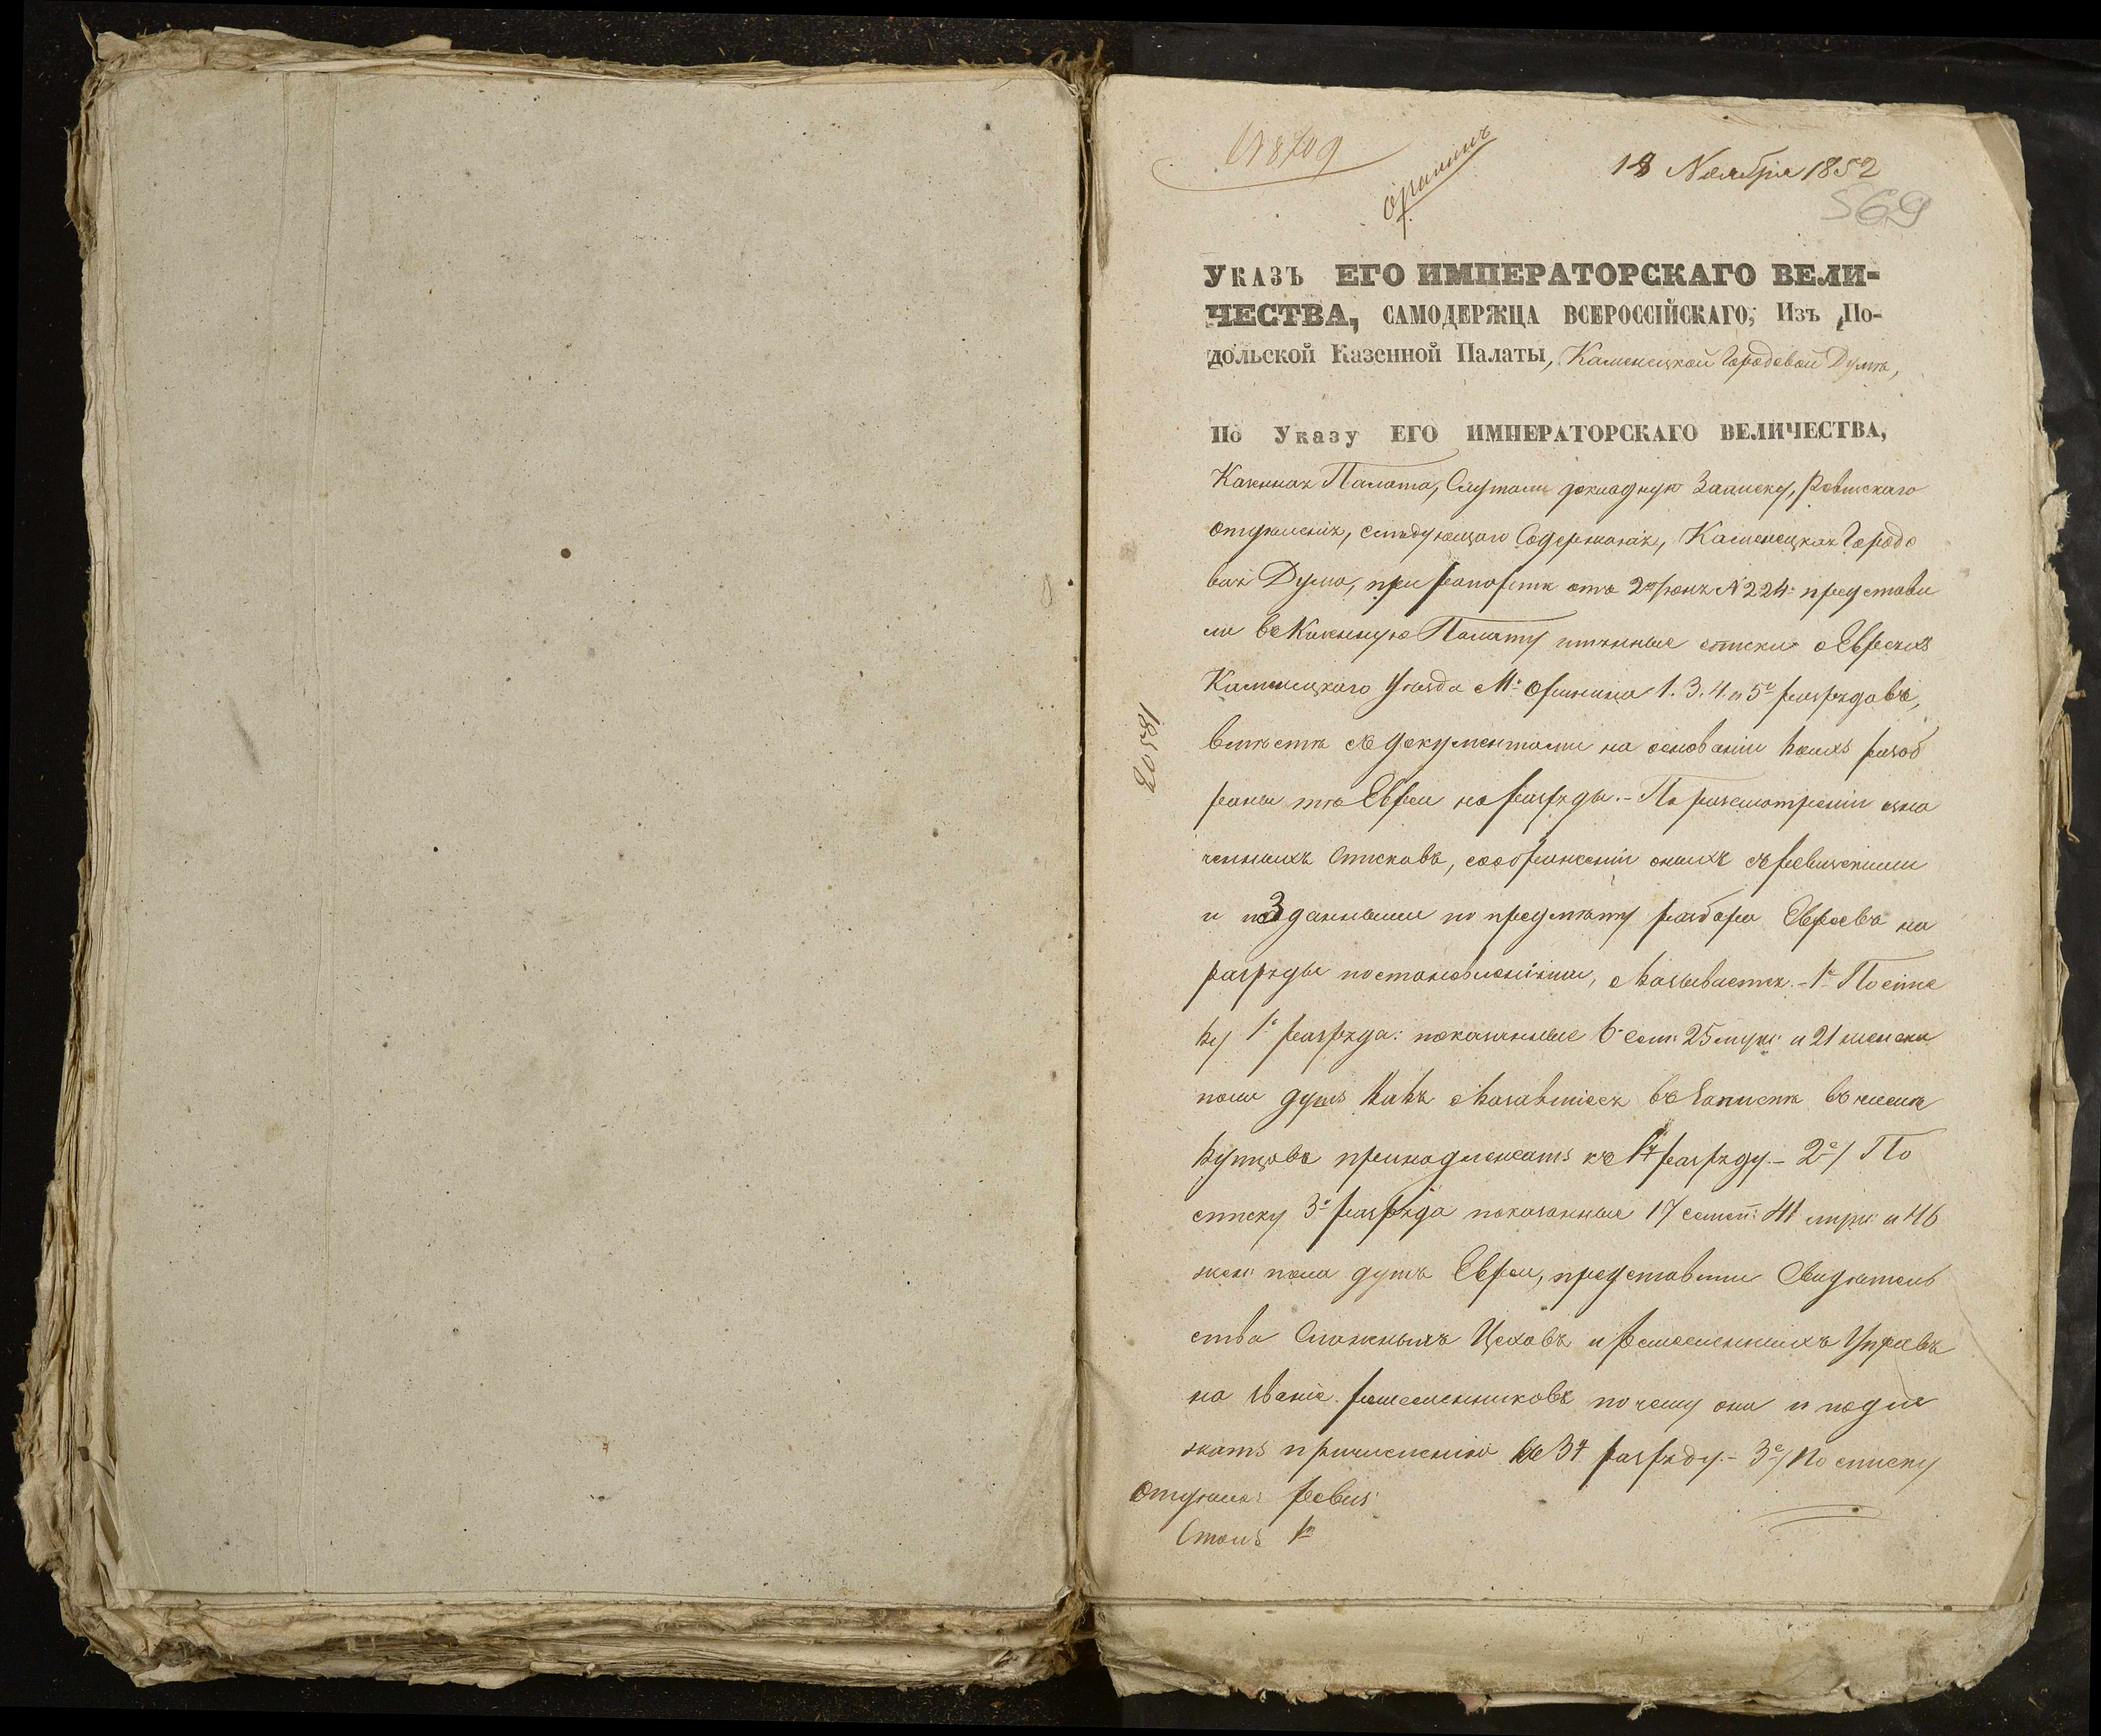 № 8709
Орынинъ
18 Ноября 1852
569
Указъ ЕГО ИМПЕРАТОРСКАГО ВЕЛИ-
ЧЕСТВА, САМОДЕРЖЦА ВСЕРОССІЙСКАГО, Изъ По-
дольской Казенной Палаты, Каменецкой Городовой Думѣ,
По Указу ЕГО ИМПЕРАТОРСКАГО ВЕЛИЧЕСТВА,
Казенная Палата, Слушали докладную Записку, Ревизскаго
отдѣленія, слѣдующаго Содержанія, Каменецкая Городо
вая Дума, при рапортѣ отъ 2го Іюня № 224 представи
ли въ Казенную Палату имянные списки о Евреяхъ
Каменецкаго уѣзда М. Орынина 1. 3. 4. и 5го разрядовъ,
вмѣстѣ съ документами на основаніи коихъ разоб
раны тѣ Евреи на разряды. - По разсмотреніи озна
ченныхъ списковъ, соображеніи оныхъ съ ревизскими
и изданными по предмѣту разбора Евреевъ на
разряды постановленіями, оказывается. - 1е По спис
ку 1го разряда: показанные 6 сем: 25 муж: и 21 женска
пола душъ какъ оказавшіеся въ Запискѣ въ числѣ
купцовъ принадлежатъ къ 1му разряду. - 2е/ По
списку 3го разряда показанные 17 семей: 41 муж: и 46
жен: пола душъ Евреи, представили Свидѣтель
ства Сложныхъ Цеховъ и ремесленныхъ Управъ
на званіе ремесленниковъ по чему они и подле
жатъ причисленію къ 3му разряду. - 3е/ По списку
Отдѣлен: ревиз:
Столъ 1й
18503